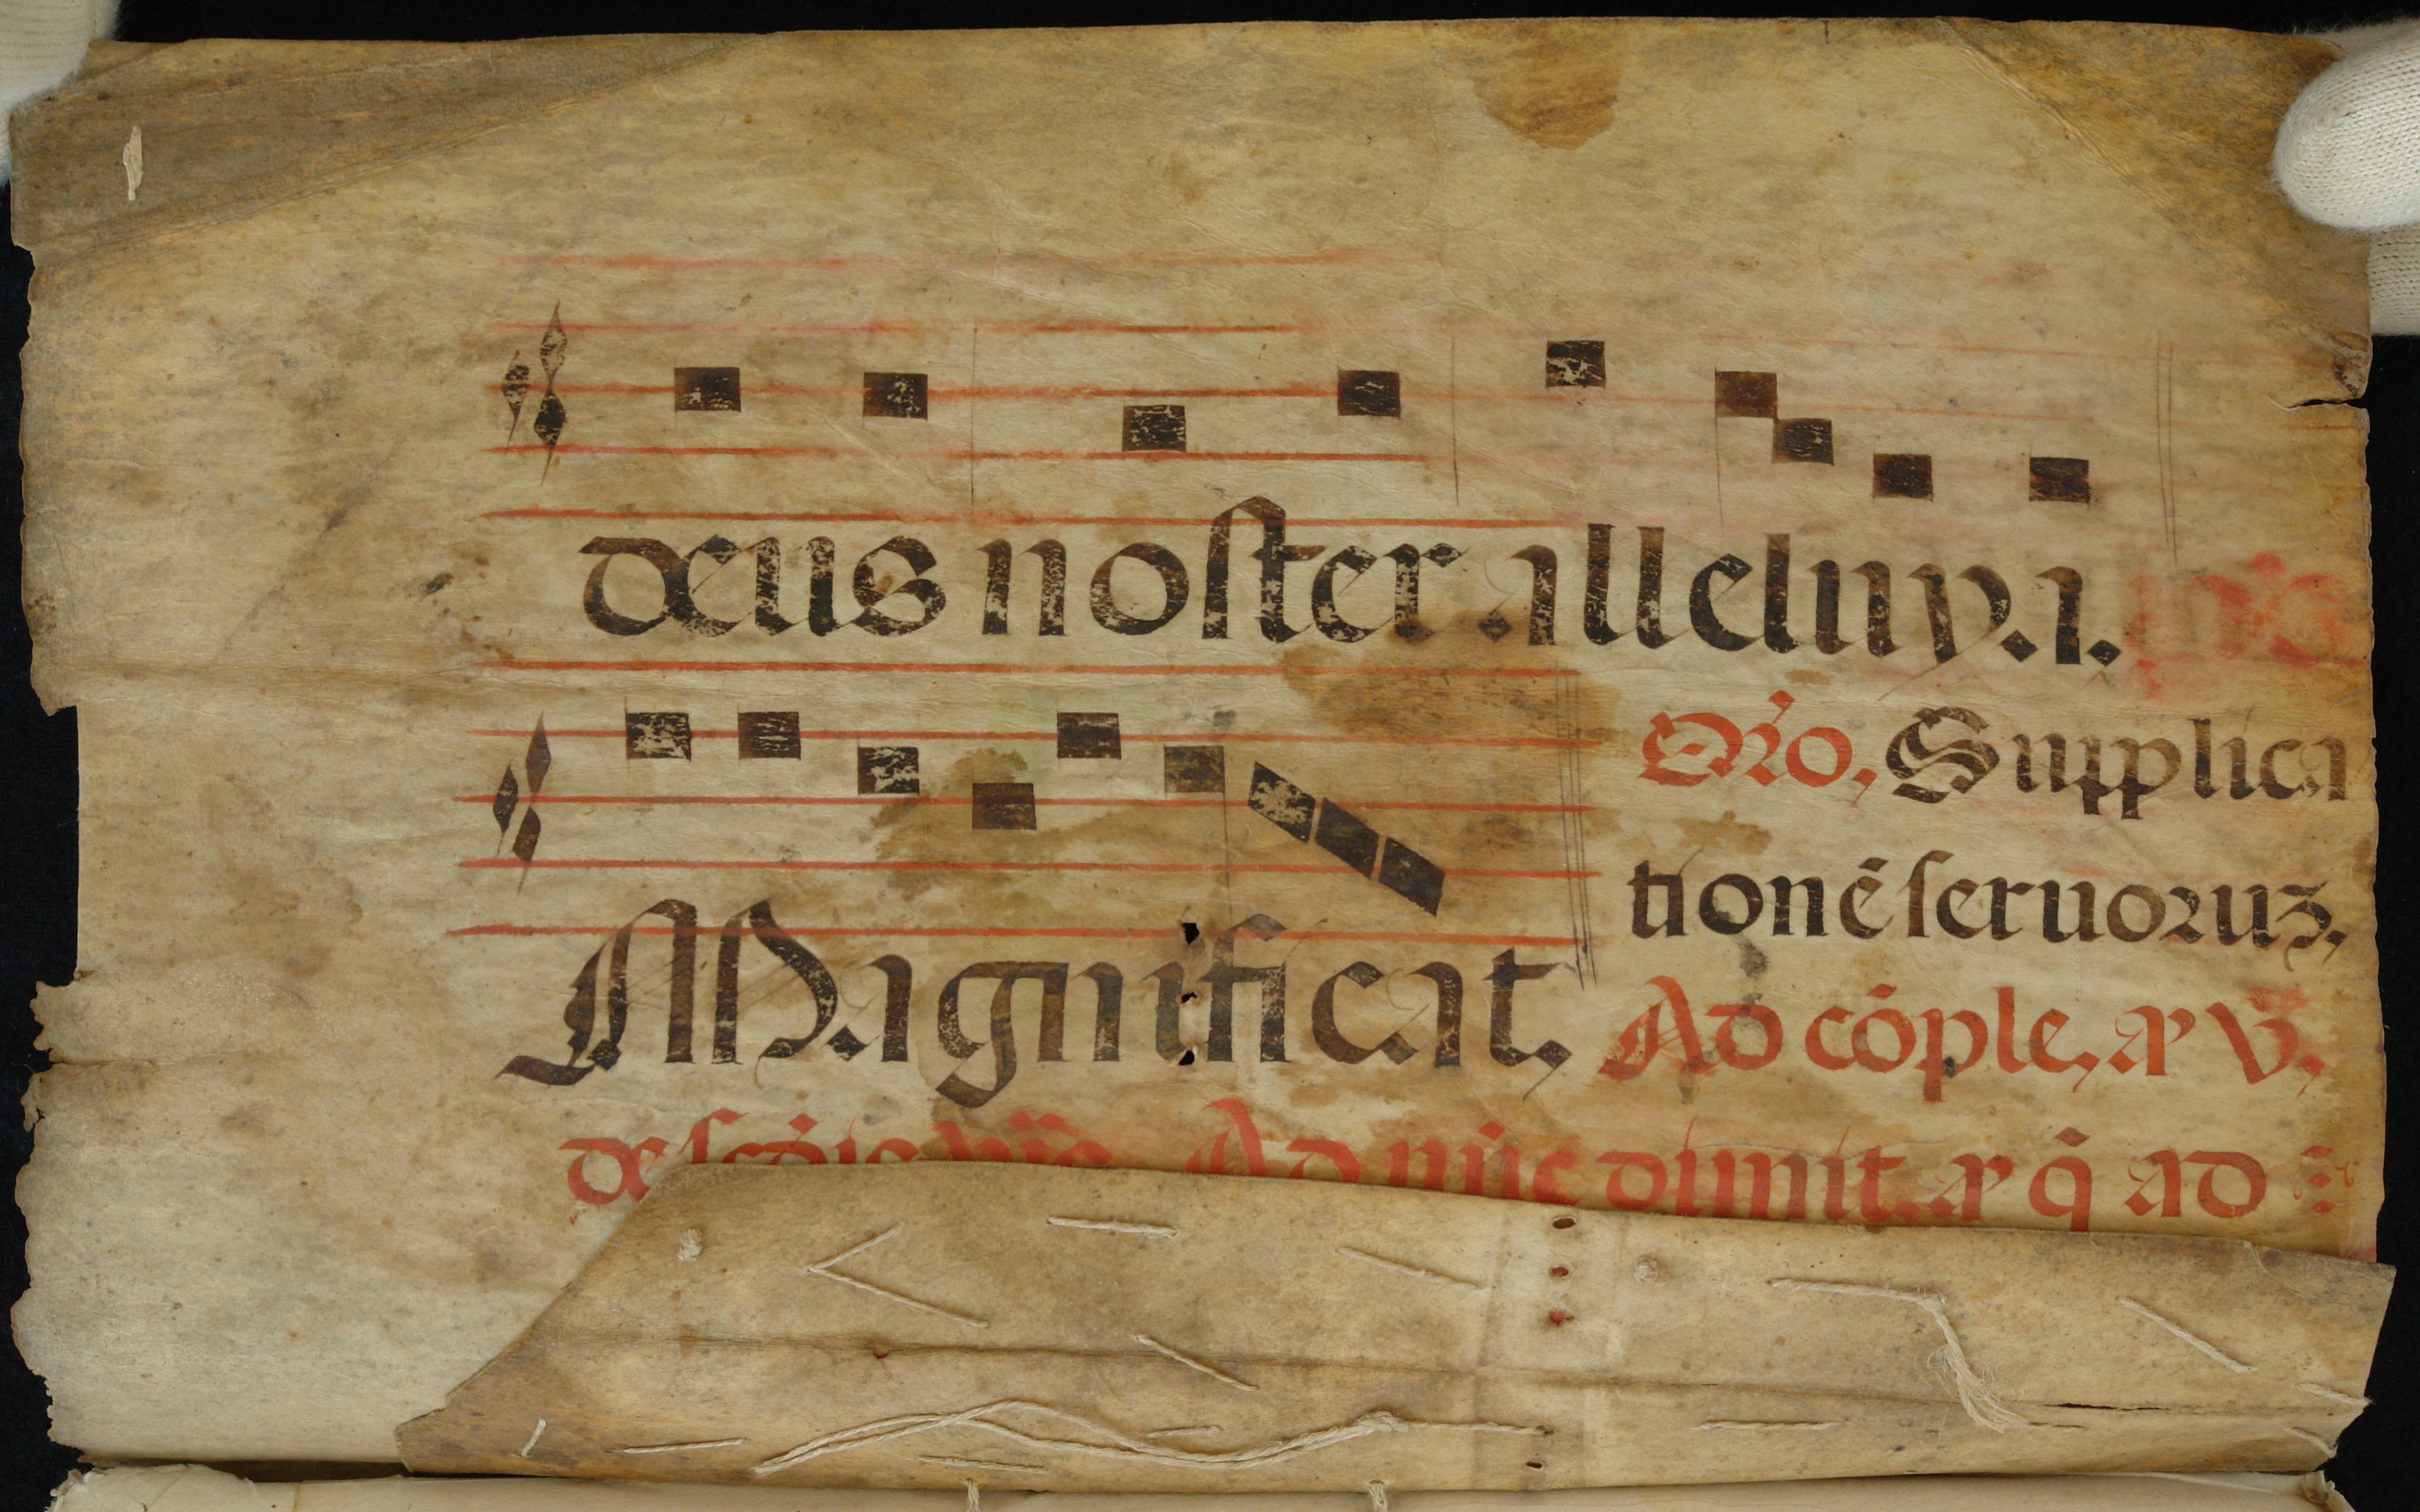 deus noster alleluya.
Oro, Supplica
tionē seruoruz,
Magnificat,
Ad cōple, aꝰ v̄,
de Ad nūc dimit. aꝰ q̄ ad